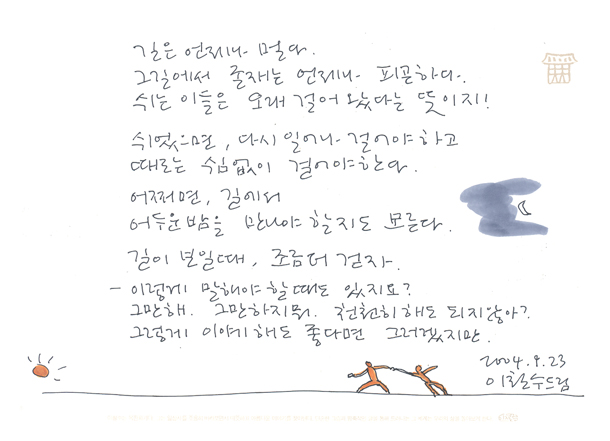 길은 언제나 멀다.
그길에서 존재는 언제나 피곤하다.
쉬는 이들은 오래 걸어 왔다는 뜻이지!
쉬었으면, 다시 일어나 걸어야 하고
때로는 쉼없이 걸어야한다.
어쩌면, 길에서
어두운밤을 만나야 할지도 모른다.
길이 보일때, 조금더 걷자.
- 이렇게 말해야 할때도 있지요?
그만해. 그만하지뭐. 천천히해도 되지않아?
그렇게 이야기해도 좋다면 그러겠지만.
2004.9.23
이철수드림